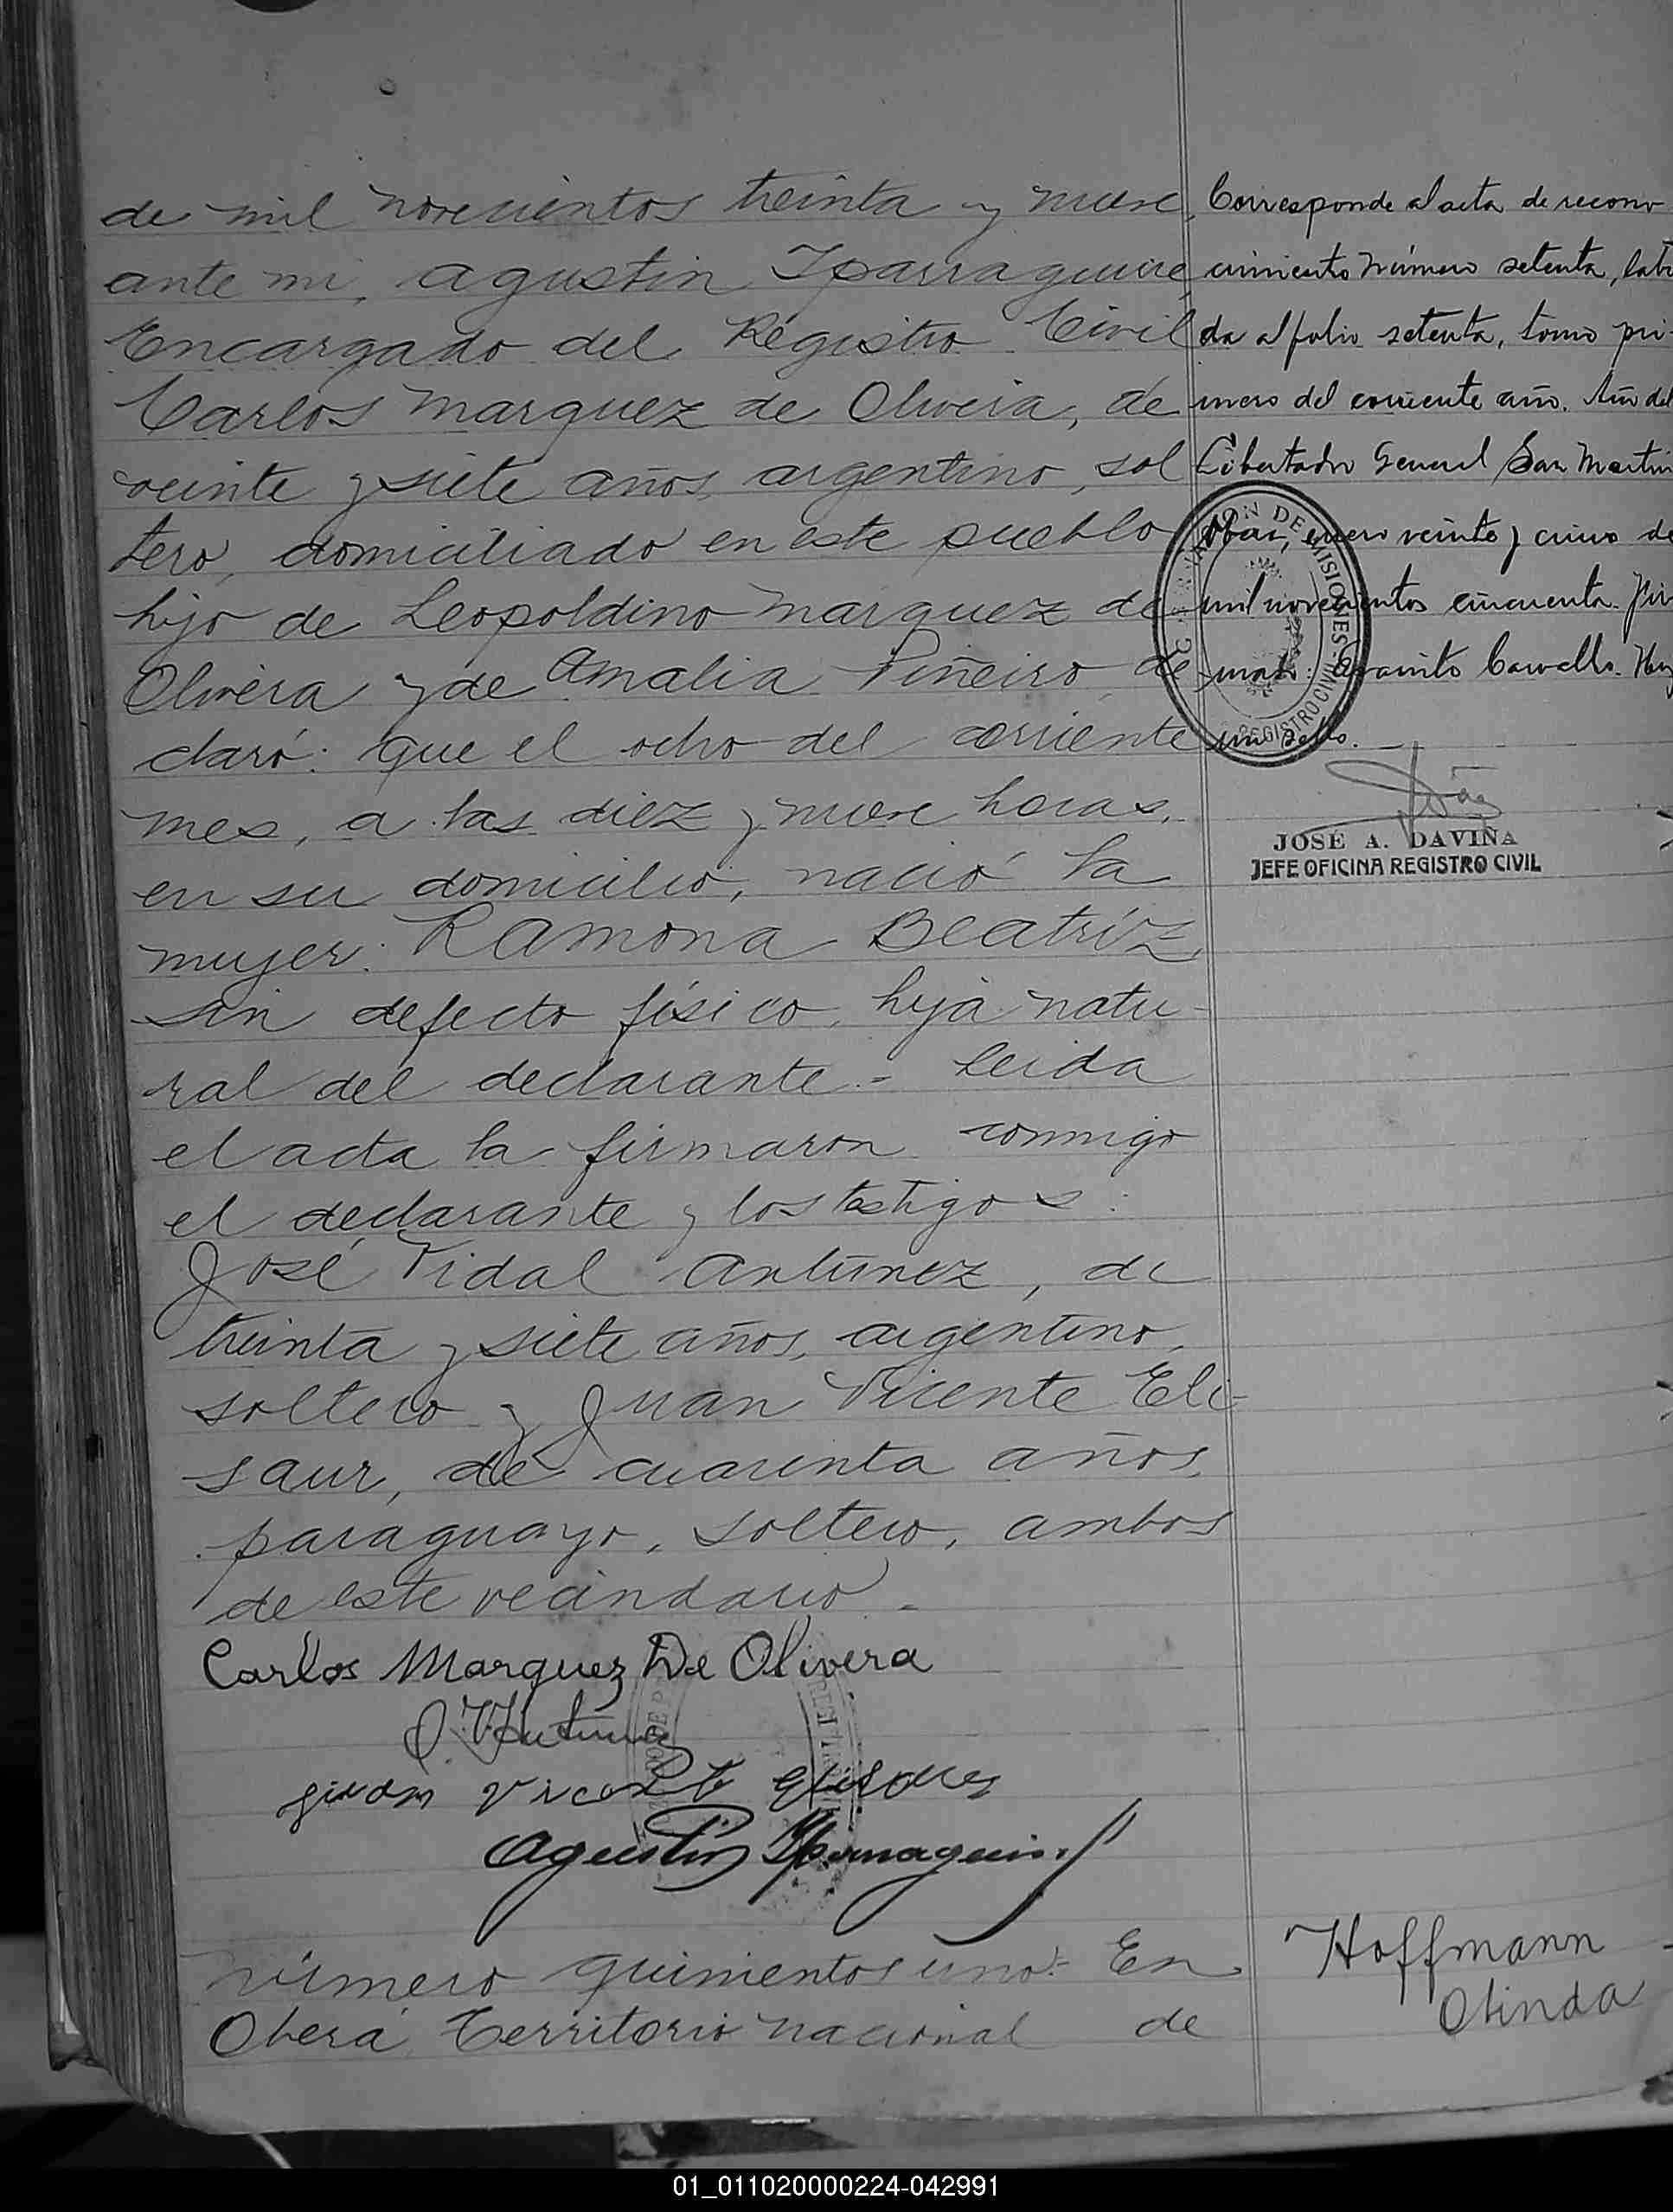 de mil novecientos treinta y nueve,
ante mi, Agustin Iparraguirre,
Encargado del Registro Civil
Carlos Marquez de Olivera, de
veinte y siete años, argentino, sol
tero, domiciliado en este pueblo
hijo de Leopoldino Marquez de
Olivera y de Amalia Piñeiro, de
claró: que el ocho del corriente
mes, a las diez y nueve horas,
en su domicilio, nació la
mujer: Ramona Beatríz,
sin defecto físico, hija natu-
ral del declarante.- Leida
el acta la firmaron conmigo
el declarante y los testigos:
José Vidal Antúnez, de
treinta y siete años, argentino,
soltero y Juan Vicente Eli-
saur, de cuarenta años,
paraguayo, soltero, ambos
de este vecindario.-
Carlos Marquez De Olivera
J. V. Antunez
Juan Vicente
Agustin Iparraguirre
Número quinientos uno:- En
Oberá, Territorio nacional de
Corresponde al acta de recono
cimiento número setenta, labr
da al folio setenta, tomo pri-
mero del corriente año. Año del
Libertador General San Martin
enero veinte y cinco de
mil novecientos cincuenta. Fir
mado: Carvallo. Hay
un sello.-
GOBERNACION DE MISIONES
REGISTRO CIVIL
JOSÉ A. DAVIÑA
JEFE OFICINA REGISTRO CIVIL
Hoffmann
Olinda
01_011020000224-042991